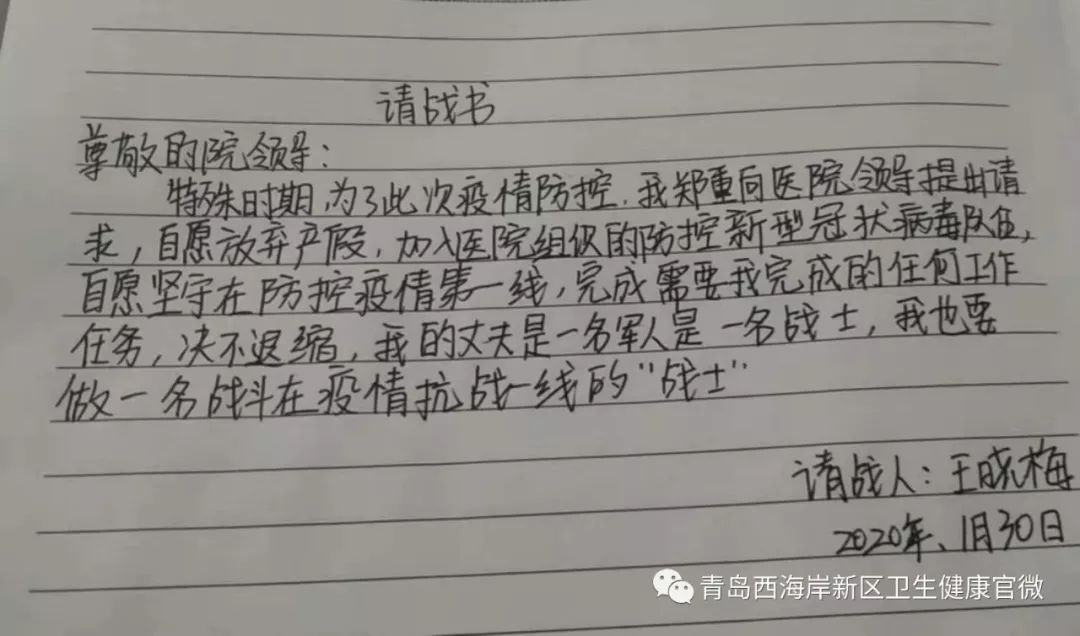 请战书
尊敬的院领导：
特殊时期，为了此次疫情防控，我郑重向医院领导提出请
求，自愿放弃产假，加入医院组织的防控新型冠状病毒队伍，
自愿坚守在防控疫情第一线，完成需要我完成的任何工作
任务，决不退缩，我的丈夫是一名军人是一名战士，我也要
做一名战斗在疫情抗战一线的“战士”
请战人：王晓梅
2020年、1月30日
青岛西海岸新区卫生健康官微